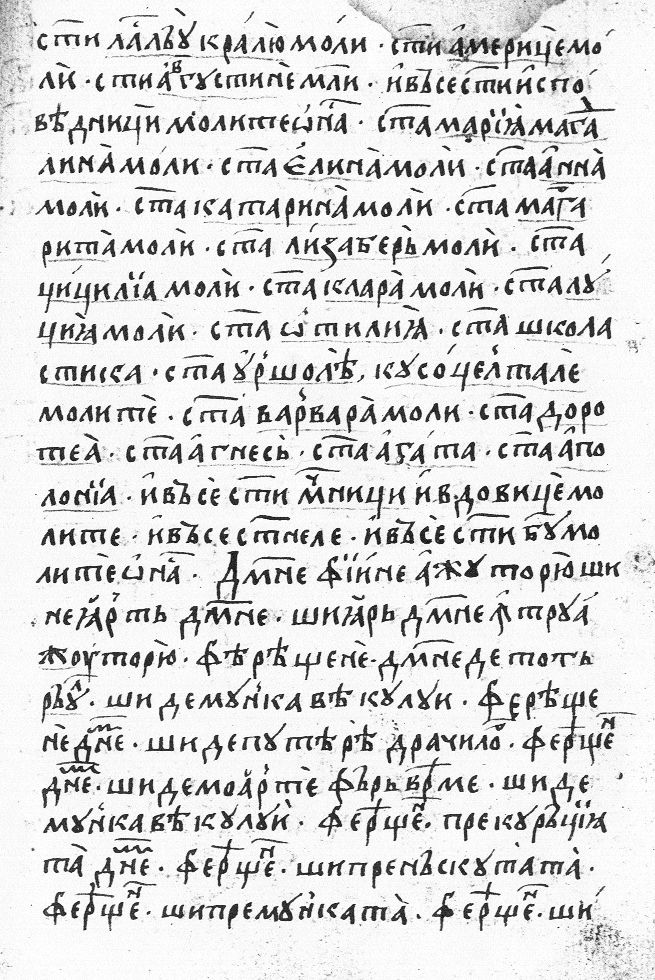 ст҃и ла́лъꙋ кра́лю мо́ли · ст҃и а҆мерище мо́
лѝ · ст҃и а҆вгꙋстине мл҃и · и҆ въсе ст҃и и҆спо́
вѣдници молите ѡ҆ н҃а · ст҃а маріꙗ мага҃
лина моли · ст҃а є҆лина моли · ст҃а а҆нна
моли · ст҃а катарина моли · ст҃а маг҃а
рита моли · ст҃а лизаберь моли · ст҃а
цицилїа моли · ст҃а клара моли · ст҃а лꙋ́
циꙗ моли · ст҃а ѡ҆тилиꙗ · ст҃а школа
стика · ст҃а ᲂу҆ршолѣ, кꙋ со́целталѐ
молитѐ · ст҃а варвара моли · ст҃а доро
теа · ст҃а а҆гнесь · ст҃а а҆гата · ст҃а а҆по
лонїа · и҆ въсѐ ст҃и м҃ници и҆ вдовицѐ мо
лите · и҆ въсе ст҃неле · и҆ въсѐ ст҃и б҃ꙋ мо
литѐ ѡ҆ н҃а · Дм҃не фїи не а҆жꙋторю ши
не ꙗ҆рть дм҃не · ши ꙗ҆рь дм҃не ꙟ҆трꙋа
жоуторю · фѣрѣщенѐ · дм҃не де тоть
рѣꙋл · ши де мꙋнка вѣкꙋлꙋи · ферѣще
нѐ дм҃не · ши де пꙋтѣрѣ драчило · ферщен
дм҃не · ши де моартѐ фѣрь врме · ши де
мꙋнка вѣкꙋлꙋи · ферщен · пре кꙋрѣцїꙗ
та дм҃не · ферщен · ши пре нъскꙋтата ·
ферщен · ши пре мꙋнката · ферщен · ши